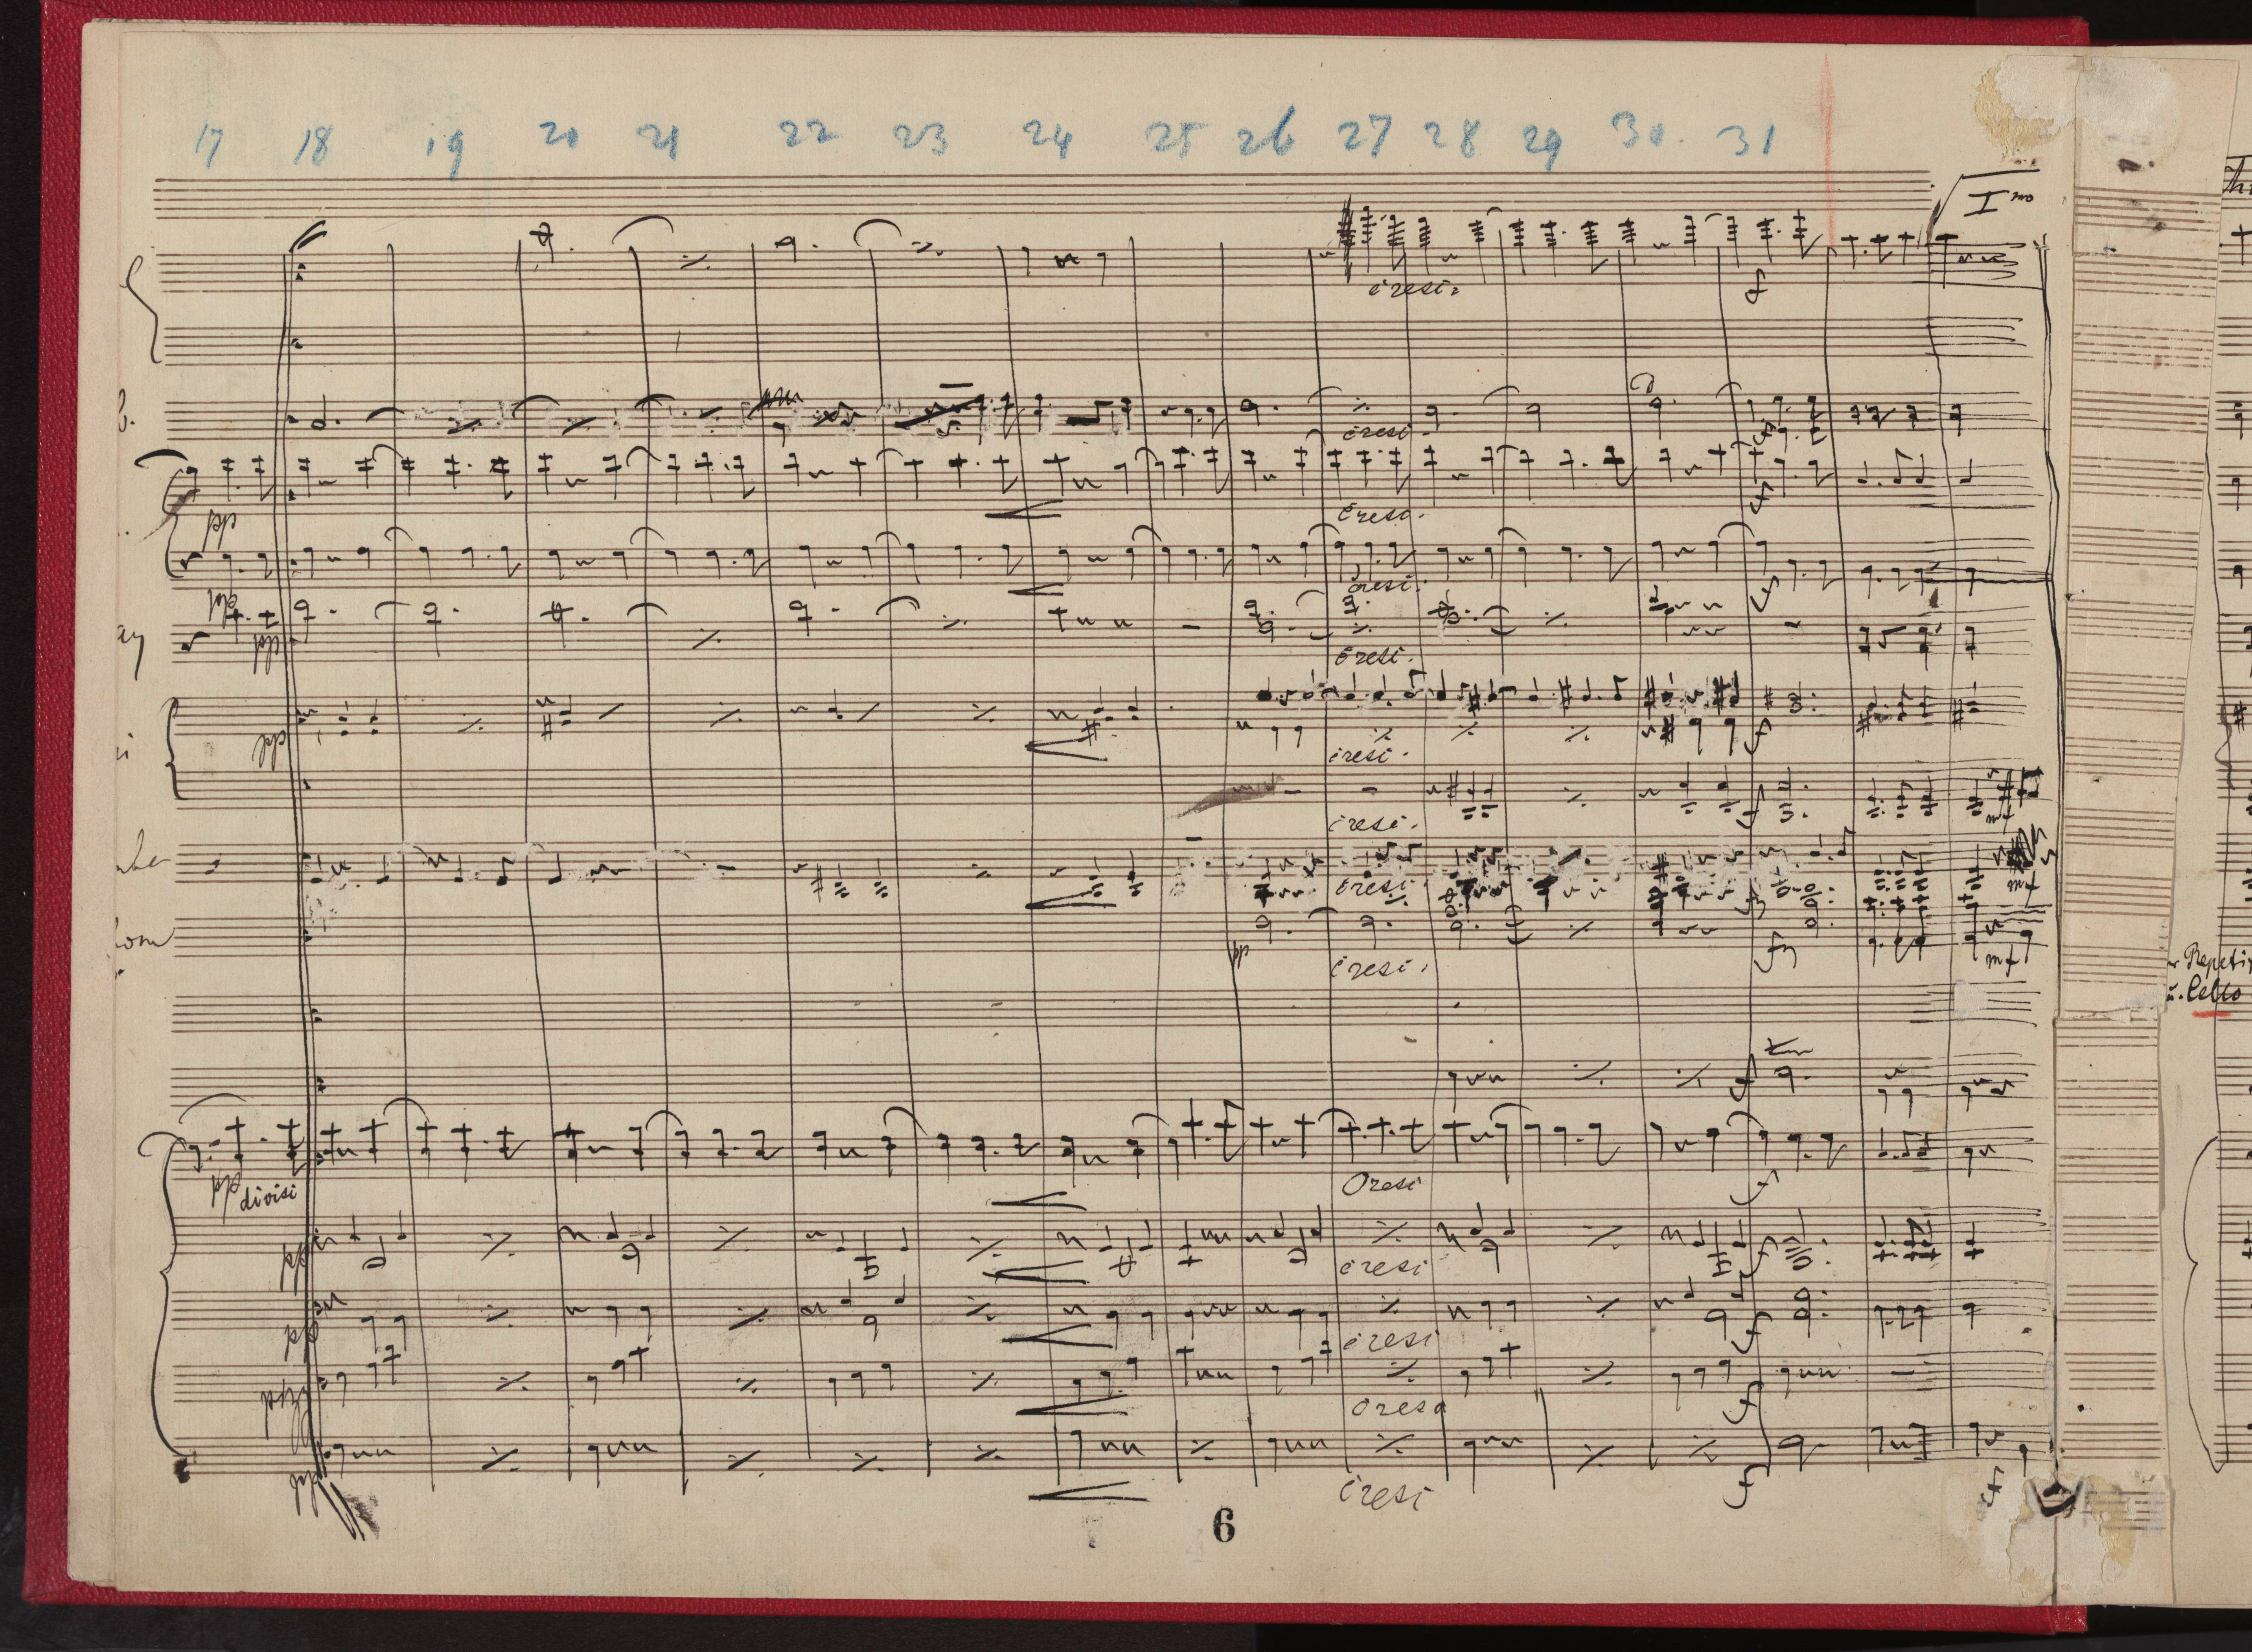 17 18 19 20 21 22 23 24 25 26 27 28 29 30. 31
Imo
cresc.
f
b.
cresc.
f
pp
cresc.
f
cresc.
f
pp
pp
cresc.
pp
cresc.
f
cresc.
f
mf
cresc.
mf
pp
cresc.
mf
Repetir
u. Cello
f
pp
divisi
cresc
f
pp
cresc
f
pp
cresc
f
cresc
f
pp
cresc
f
f
6